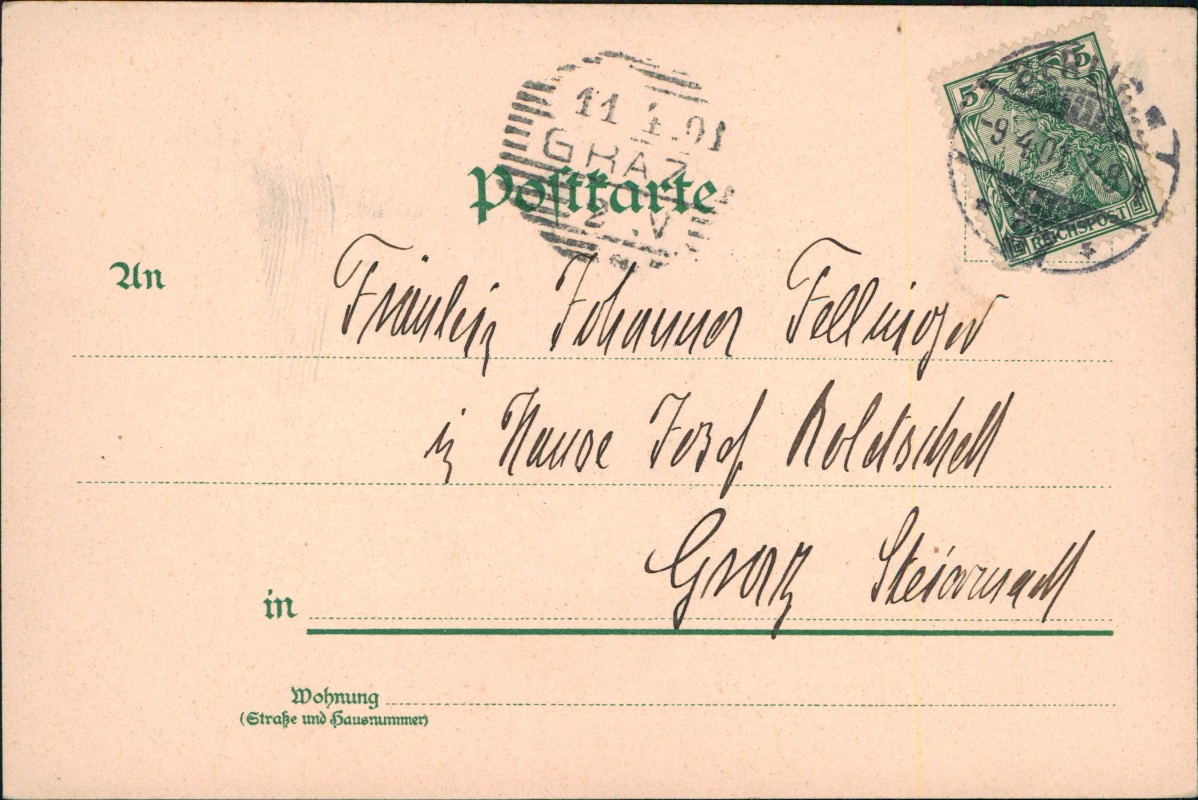 11 4.01
GRAZ
2 .V
5 5
-9.4.01
REICHSPOST
Postkarte
An
Fräulein Johanna Fellinger
in Hause Josef
in Graz Steiermark
Wohnung
(Straße und Hausnummer)